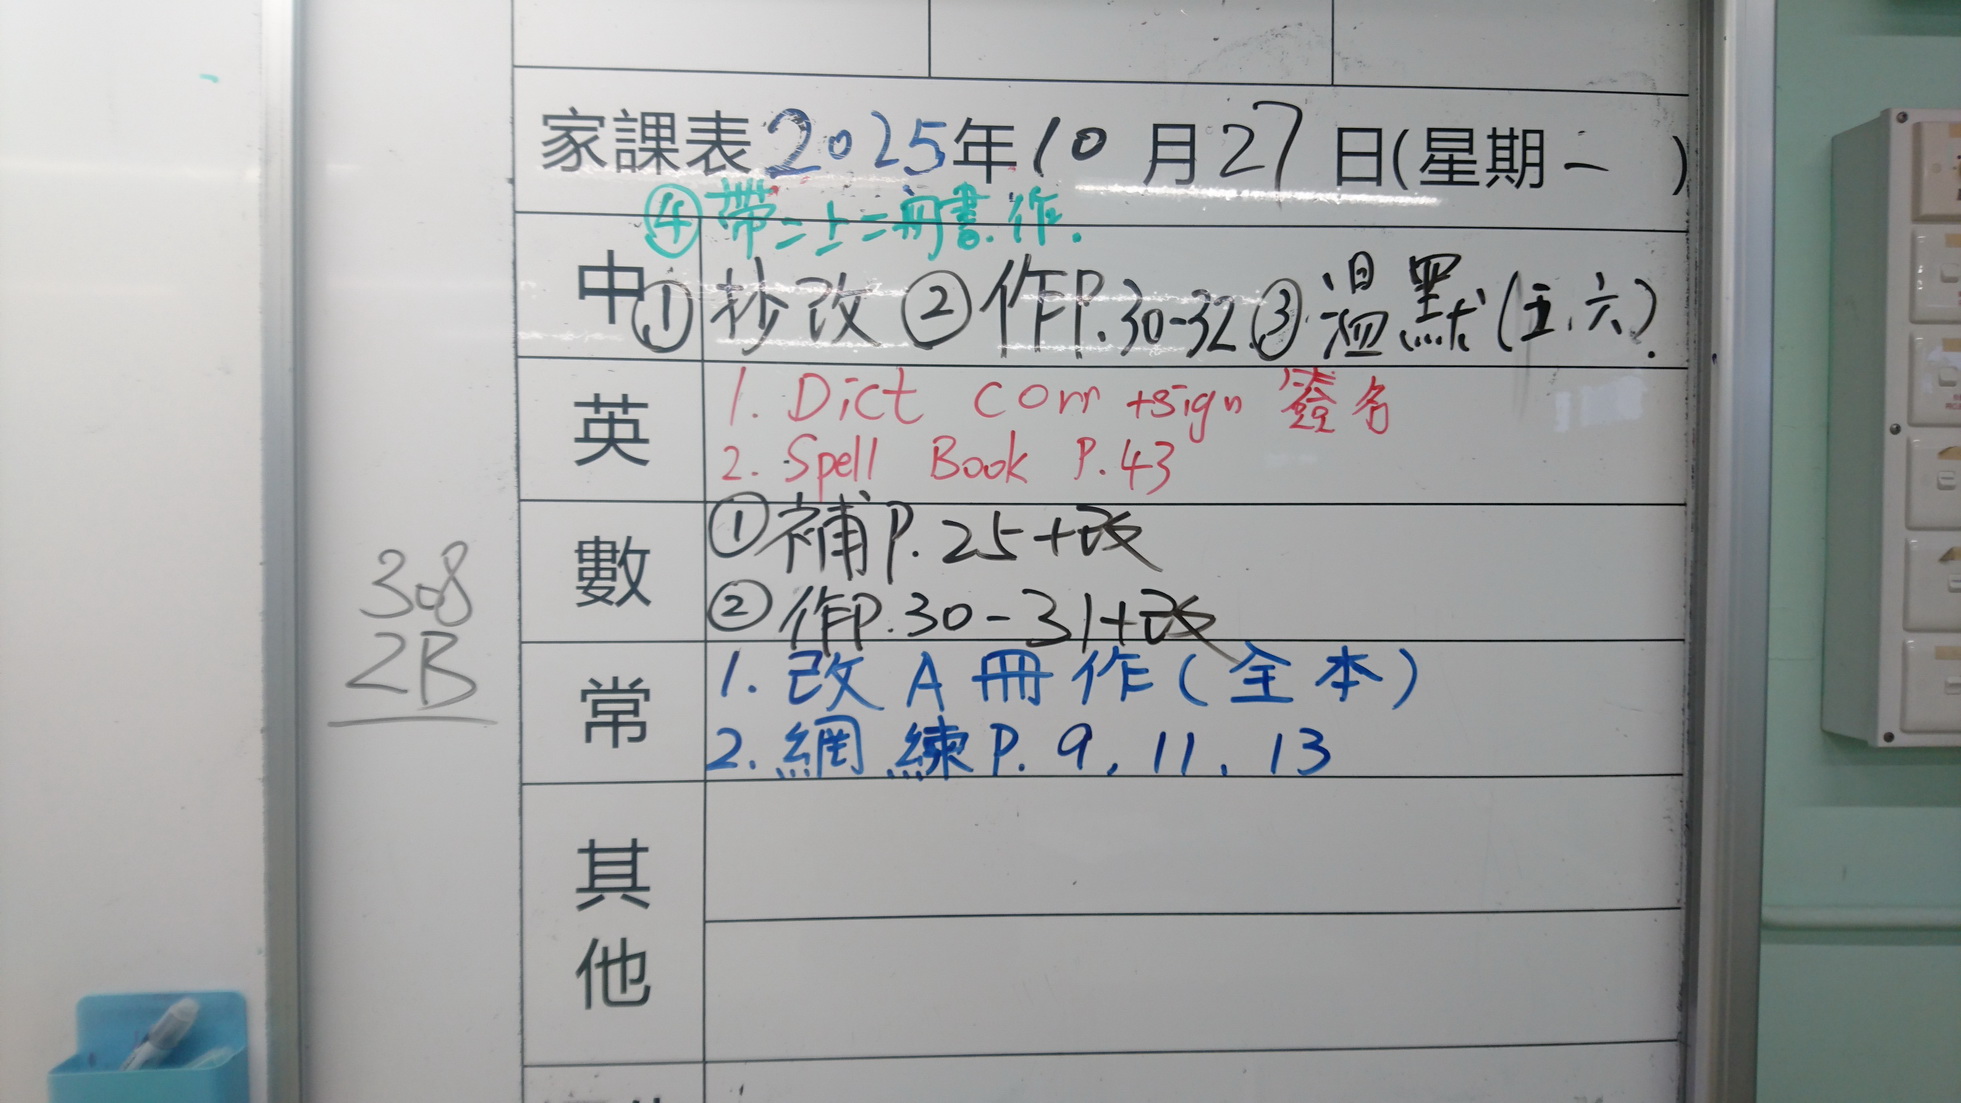 家課表2025年10月27日(星期一)
④帶二上二冊書.作.
中①抄改②作P.30-32③溫默(五.六).
英
1. Dict Corr +sign 簽名
2. Spell Book P.43
數
①補P.25+改
②作P.30-31+改
常
1. 改A冊作(全本)
2. 網練P. 9, 11, 13
308
2B
其他